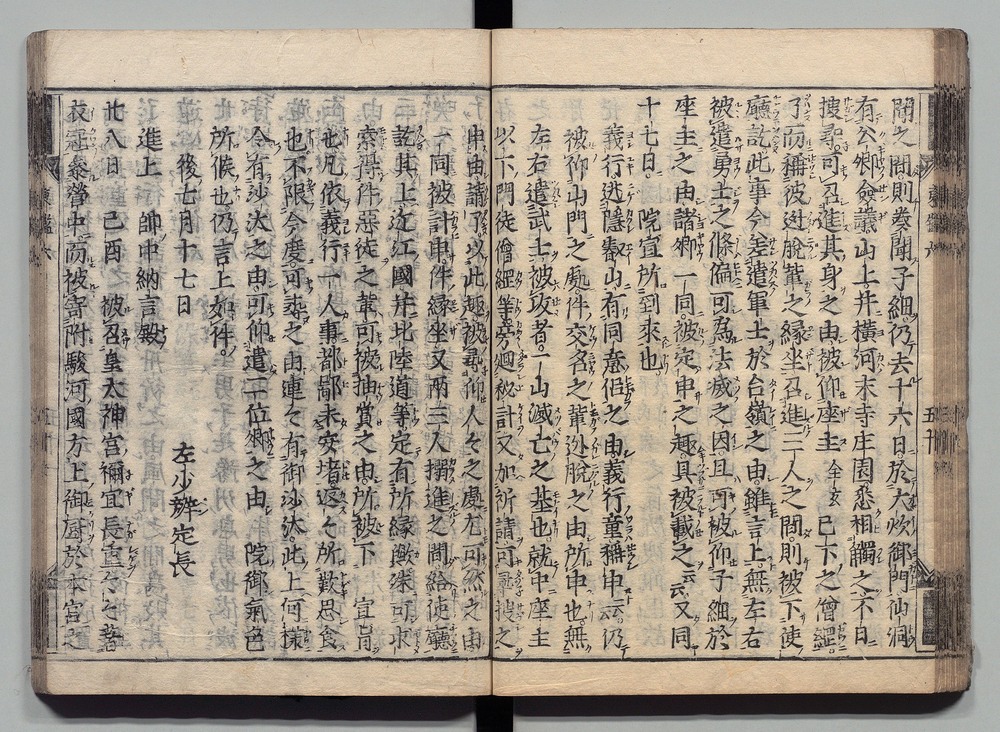 聞之間則奏聞子細仍去十六日於大炊御門仙洞
有公卿僉議山上并橫河末寺庄園悉相觸之不日
搜尋可召進其身之由被仰座主全玄已下之僧綱
了而稱彼逃脫輩之緣坐召進三人之間則被下使
廳訖此事今差遣軍士於台嶺之由雖言上無左右
被遣勇士之條偏可為法滅之因且可被仰子細於
座主之由諸卿一同被定申之趣具被載之云云又同
十七日院宣所到來也
義行逃隱叡山有同意侶之由義行童稱申云云仍
被仰山門之處件交名之輩逃脫之由所申也無
左右遣武士被攻者一山滅亡之基也就中座主
以下門徒僧綱等旁廻秘計又加祈請可尋搜之
申由請了以此趣被尋仰人々之處尤可然之由
一同被計申件緣坐又兩三人搦進之間給使廳
訖其上近江國并北陸道等定有所緣歟殊可求
索得件惡徒之輩可被抽賞之由所被下宣旨
也凡依義行一人事都鄙未安堵返々所歎思食
也不限今度可誡之由連々有御沙汰此上何樣
令有沙汰之由可仰遣二位卿之由院御氣色
所候也仍言上如件
後七月十七日
左少辨定長
進上帥中納言殿
廿八日己酉被召皇太神宮禰宜長重
參營中而被寄附駿河國方上御厨於本宮
東鑑六
五十